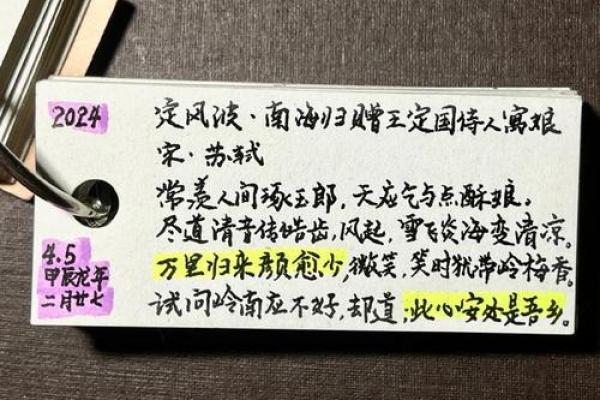 2024
定风波·南海归赠王定国侍人寓娘
宋·苏轼
常羡人间琢玉郎,天应乞与点酥娘。
尽道清音传皓齿,风起,雪飞炎海变清凉。
万里归来颜愈少,微笑,笑时犹带岭梅香。
试问岭南应不好,却道:此心安处是吾乡。
4.5
甲辰龙年
二月廿七